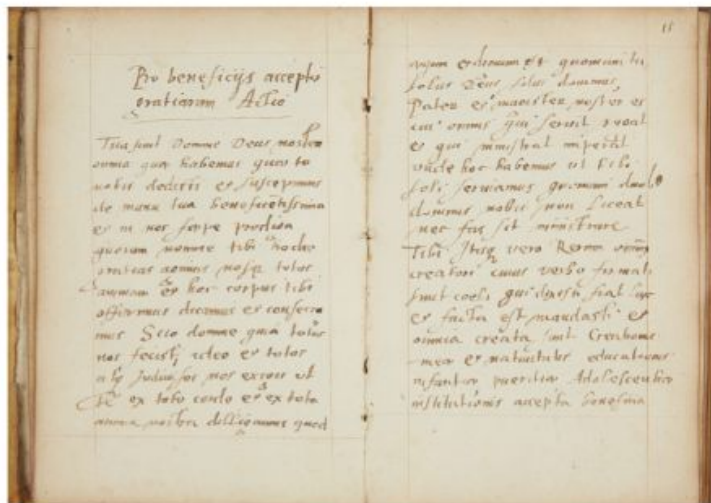 Pro beneficijs acceptis
gratiarum Actio
Tua sunt Domine Deus noster
omnia quae habemus quae tu
nobis dedisti et suscepimus
de manu tua beneficentissima
et in nos semper
quorum nomine tibi hodie
gratias agimus
animam et hoc corpus tibi
offerimus dicamus et consecra
mus Scio domine quia
nos fecisti ideo et totos
nos ut
te ex toto corde et ex tota
anima nostra diligamus quod
11
quoniam tu
solus Deus solus dominus,
Pater et magister noster es
cui omnis qui servit
et qui ministrat imperat
unde hoc habemus ut tibi
soli serviamus quoniam
dominis nobis non liceat
nec fas sit ministrare
Tibi vero
creatori cuius verbo firmati
sunt coeli qui dixisti fiat lux
et facta est mandasti et
omnia creata sunt Creationis
meae et educationis
infantiae pueritiae Adolescentiae
institutionis accepta